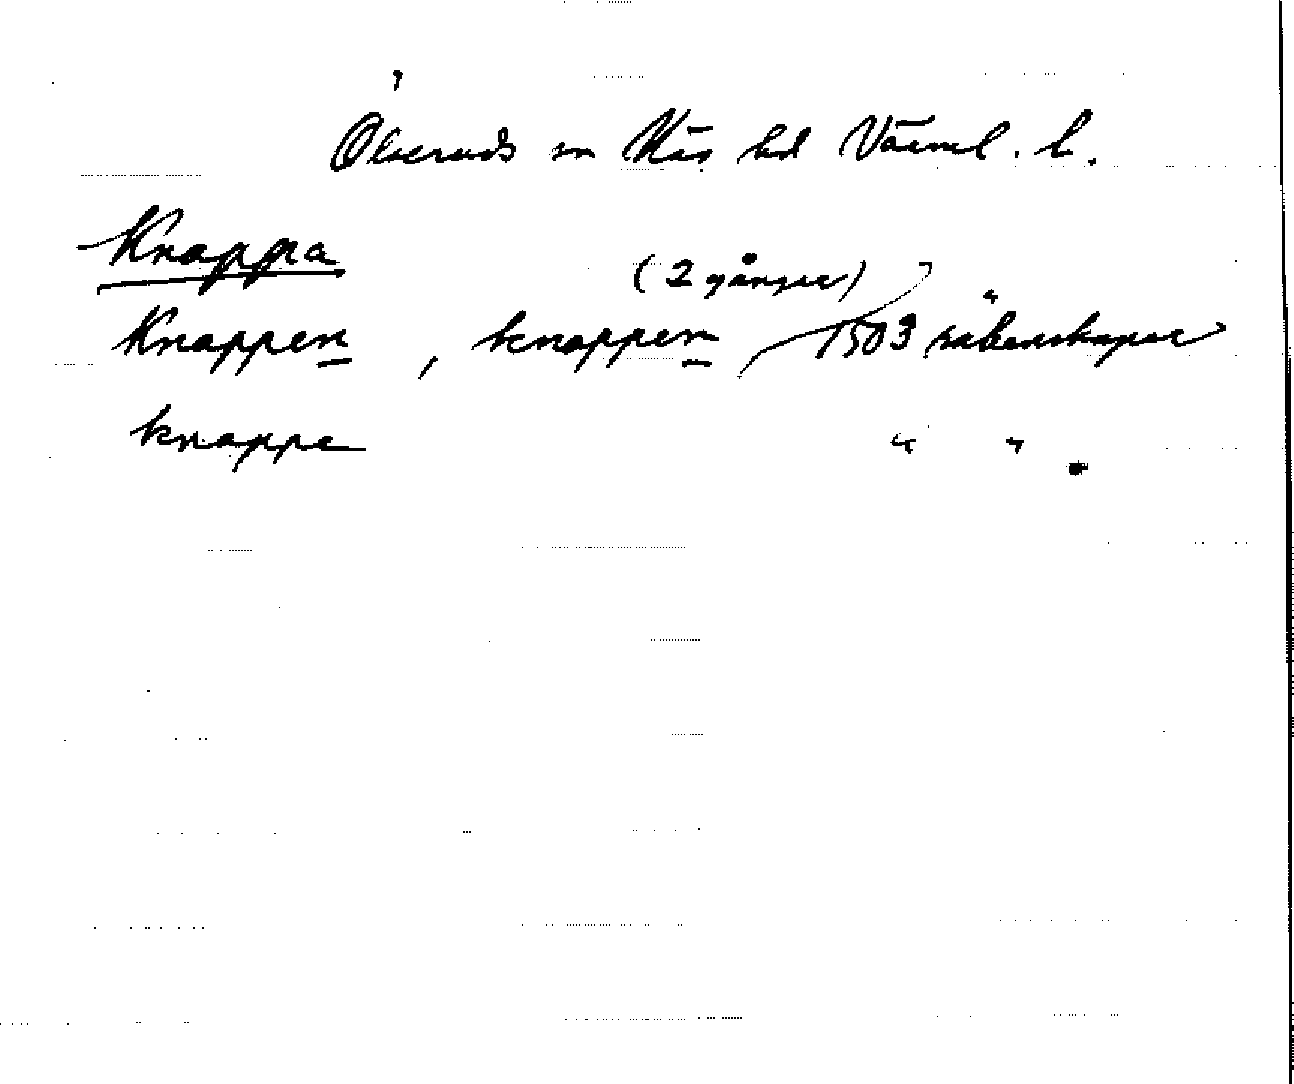 Ölseruds sn Näs hd Värml. l.
Knappa
(2 gånger)
Knappen, knappen, 1503 räkenskaper
knappe " ".